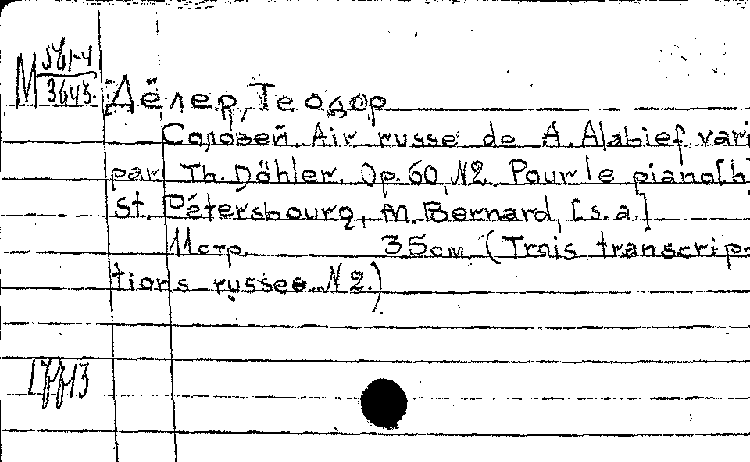 M 561-4
3645.
Дёлер, Теодор
Соловей. Air russe de A. Alabief vari
par Th. Döhler. Op. 60, N2. Pour le piano[h
St. Pétersbourg, M. Bernard, [s.a.]
11 стр. 35 см. (Trois transcrip-
tions russes. N2.)